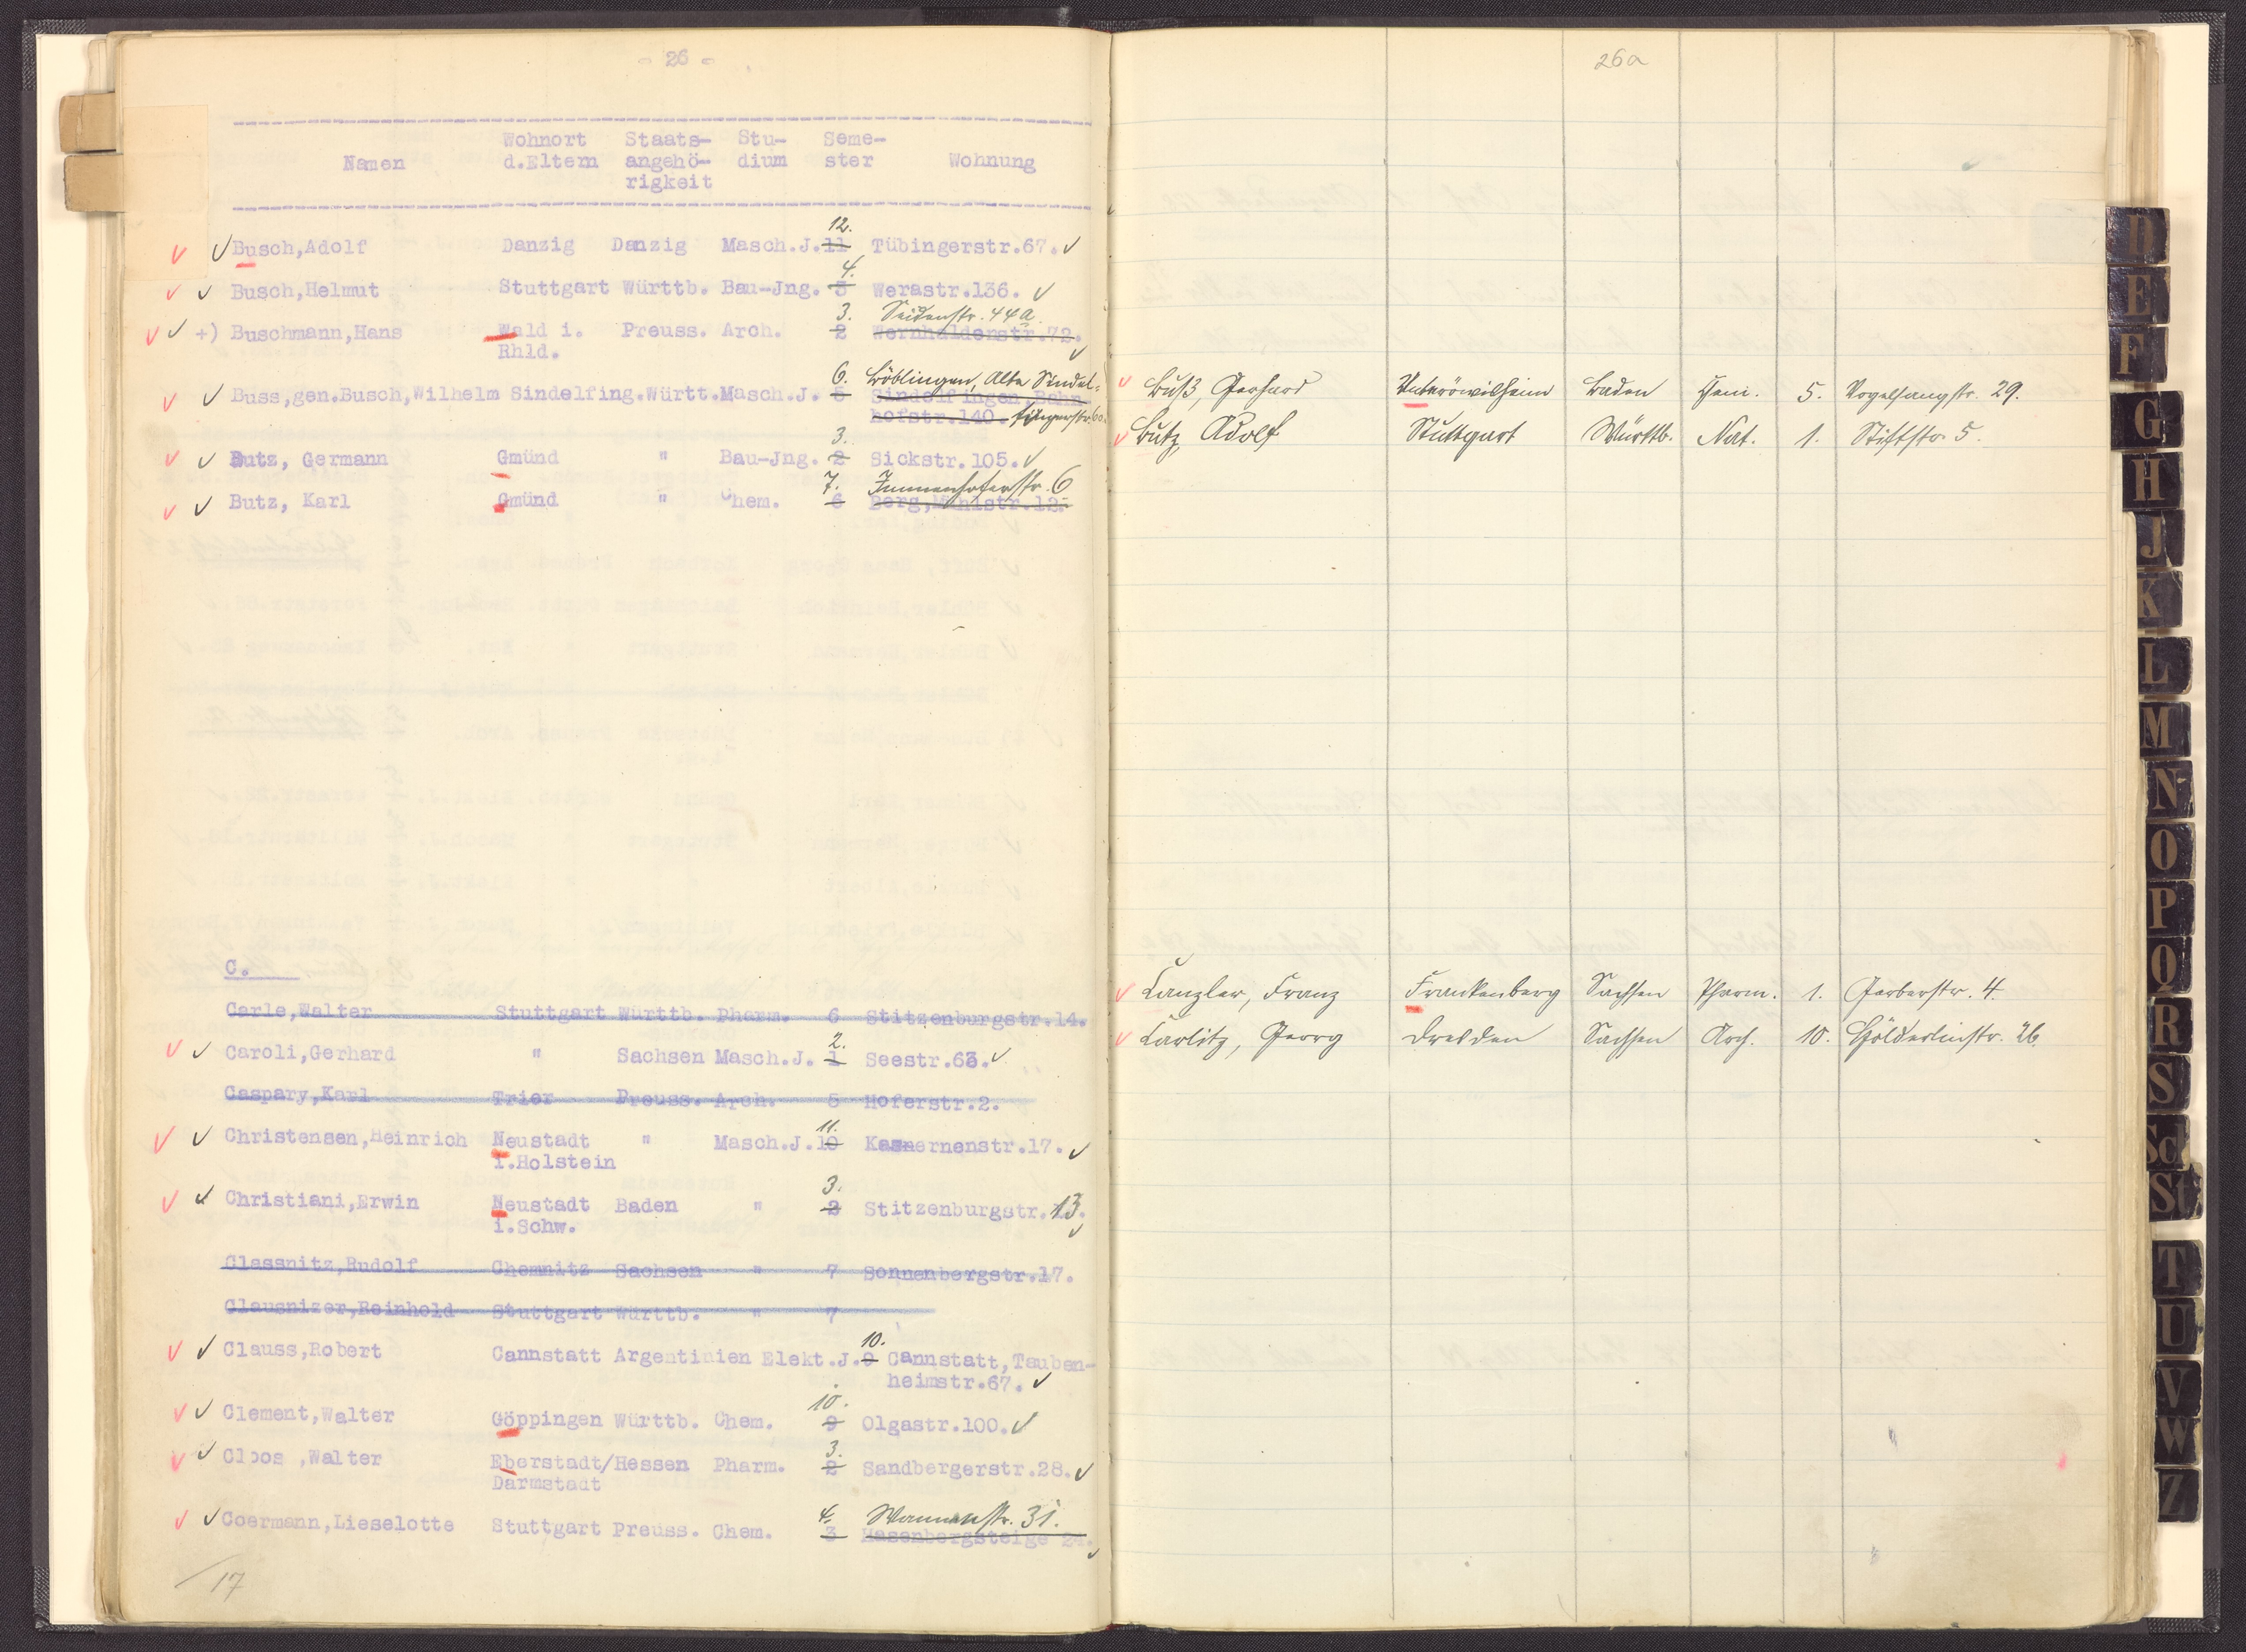 - 26 -
Wohnort Staats- Stu- Seme-
Namen d.Eltern angehö- dium ster Wohnung
rigkeit
12.
Busch,Adolf Danzig Danzig Masch.J. 11 Tübingerstr.67.
4.
Busch,Helmut Stuttgart Württb. Bau-Jng. 3 Werastr.136.
3. Seidenstr. 44a.
+) Buschmann,Hans Wald i. Preuss. Arch. 2 Wernhaldenstr.72.
Rhld.
6. Böblingen, Alte Sindel-
Buss,gen.Busch,Wilhelm Sindelfing.Württ.Masch.J. 5 Sindelfingen Bahn
hofstr.140. fingerstr.
3.
Butz, Germann Gmünd " Bau-Jng. 2 Sickstr.105.
7. Immenhoferstr. 6
Butz, Karl Gmünd " Chem. 6 Berg,Mühlstr.12.
C.
Carle,Walter Stuttgart Württb. Pharm. 6 Stitzenburgstr.14.
2.
Caroli,Gerhard " Sachsen Masch.J. 1 Seestr.63.
Caspary,Karl Trier Preuss. Arch. 5 Hoferstr.2.
11.
Christensen,Heinrich Neustadt " Masch.J. 10 Kasernenstr.17.
i.Holstein
3.
Christiani,Erwin Neustadt Baden " 2 Stitzenburgstr.13.
i.Schw.
Classnitz,Rudolf Chemnitz Sachsen " 7 Sonnenbergstr.17.
Clausnizer,Reinhold Stuttgart Württb. " 7
10.
Clauss,Robert Cannstatt Argentinien Elekt.J. 9 Cannstatt,Tauben-
heimstr.67.
10.
Clement,Walter Göppingen Württb. Chem. 9 Olgastr.100.
3.
Cloos ,Walter Eberstadt/Hessen Pharm. 2 Sandbergerstr.28.
Darmstadt
4. Wannenstr. 31.
Coermann,Lieselotte Stuttgart Preuss. Chem. 3 Hasenbergsteige 24.
17
26a
Buß, Gerhard Unteröwisheim Baden Chem. 5. Vogelsangstr. 29.
Butz, Adolf Stuttgart Württb. Nat. 1. Stiftstr. 5.
Canzler, Franz Frankenberg Sachsen Pharm. 1. Gerberstr. 4.
Carlitz, Georg Dresden Sachsen Arch. 10. Hölderlinstr. 26.
D
E
F
G
H
J
K
L
M
N
O
P
Q
R
S
Sch
St
T
U
V
W
Z